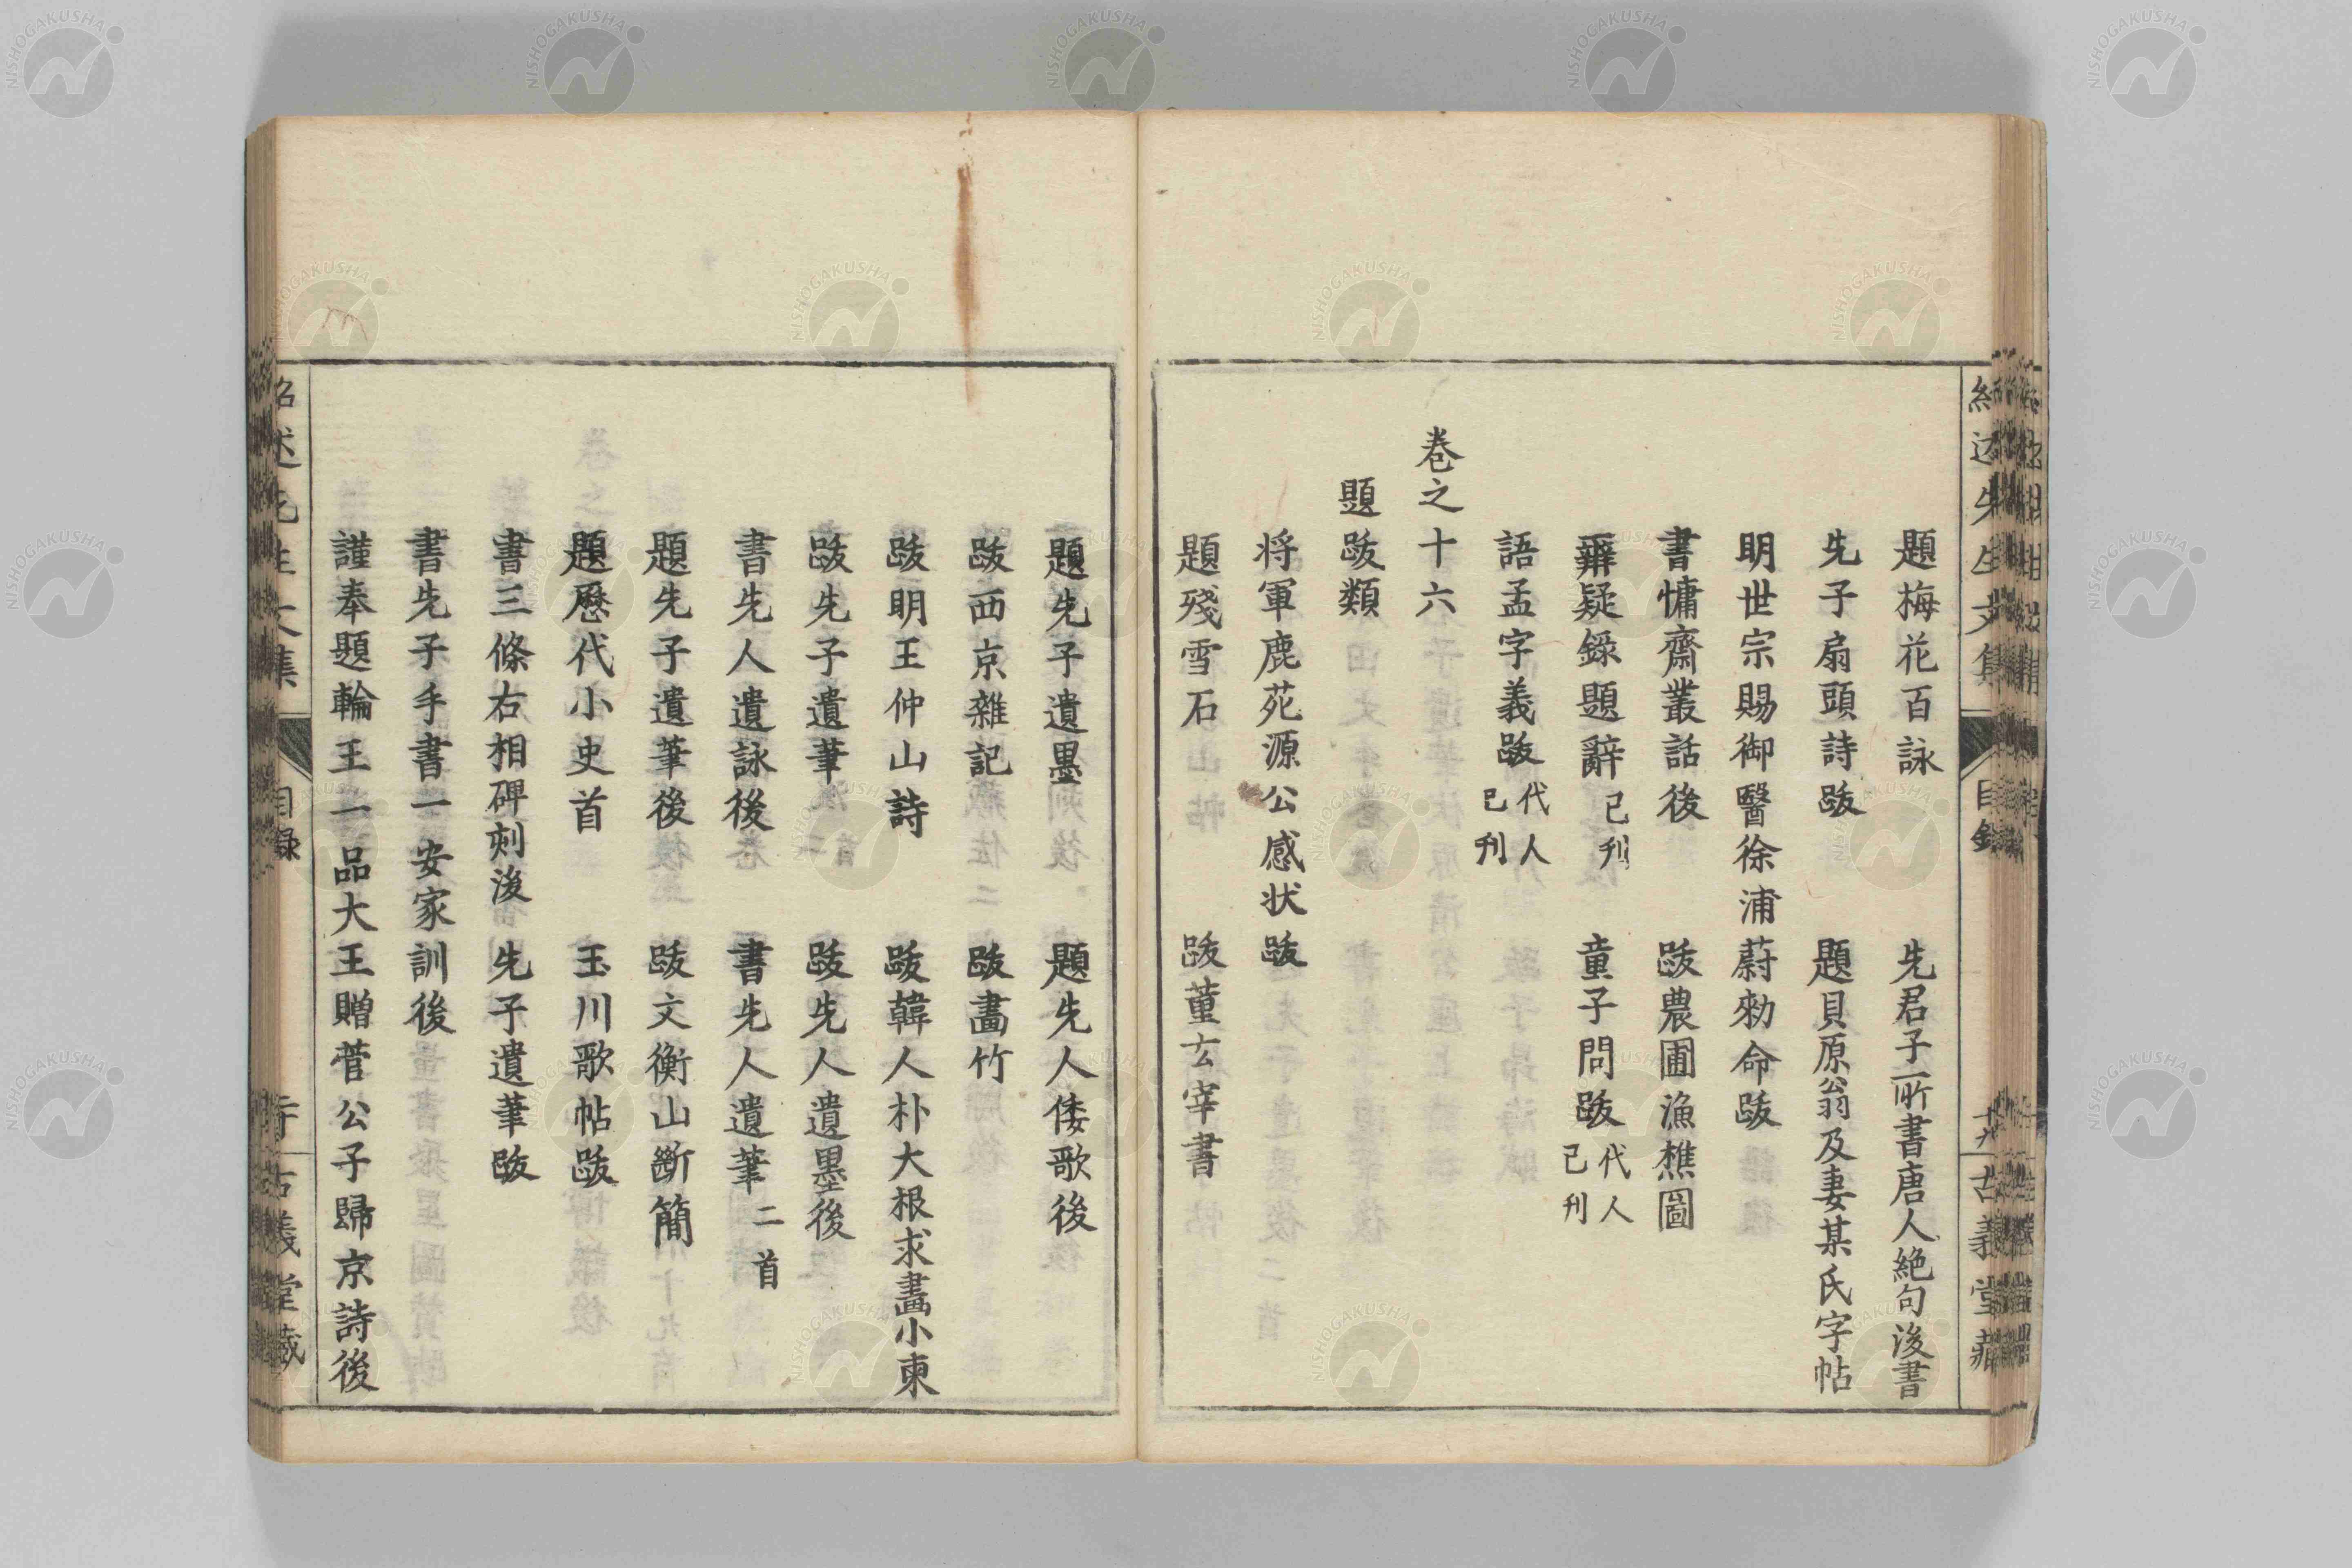 題梅花百詠　先君子所書唐人絶句後書
先子扇頭詩跋　題貝原翁及妻某氏字帖
明世宗賜御醫徐浦蔚勑命跋
書慵齋叢話後　跋農圃漁樵圖
辨疑錄題辭 已刋　童子問跋 代人已刋
語孟字義跋 代人已刋
卷之十六
題跋類
将軍鹿苑源公感状跋
題殘雪石　跋董玄宰書
題先子遺墨　題先人倭歌後
跋西京雜記　跋畵竹
跋明王仲山詩　跋韓人朴大根求畵小柬
跋先子遺筆　跋先人遺墨後
書先人遺詠後　書先人遺筆 二首
題先子遺筆後　跋文衡山斷簡
題歷代小史首　玉川歌帖跋
書三條右相碑刻後　先子遺筆跋
書先子手書一安家訓後
謹奉題輪王一品大王贈菅公子歸京詩後
紹述先生文集　目録　古義堂藏
NISHOGAKUSHA